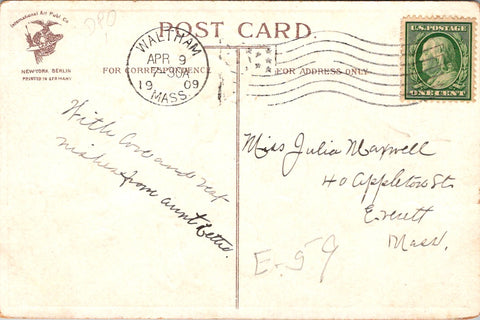 International Art Publ. Co.
NEW YORK. BERLIN
PRINTED IN GERMANY
DPO
POST CARD.
FOR CORRESPONDENCE
FOR ADDRESS ONLY
WALTHAM
APR 9
19 09
MASS.
U.S. POSTAGE
ONE CENT
With love and
wishes from aunt
Miss Julia Maxwell
40 Appleton St.
Everett
Mass.
E-59